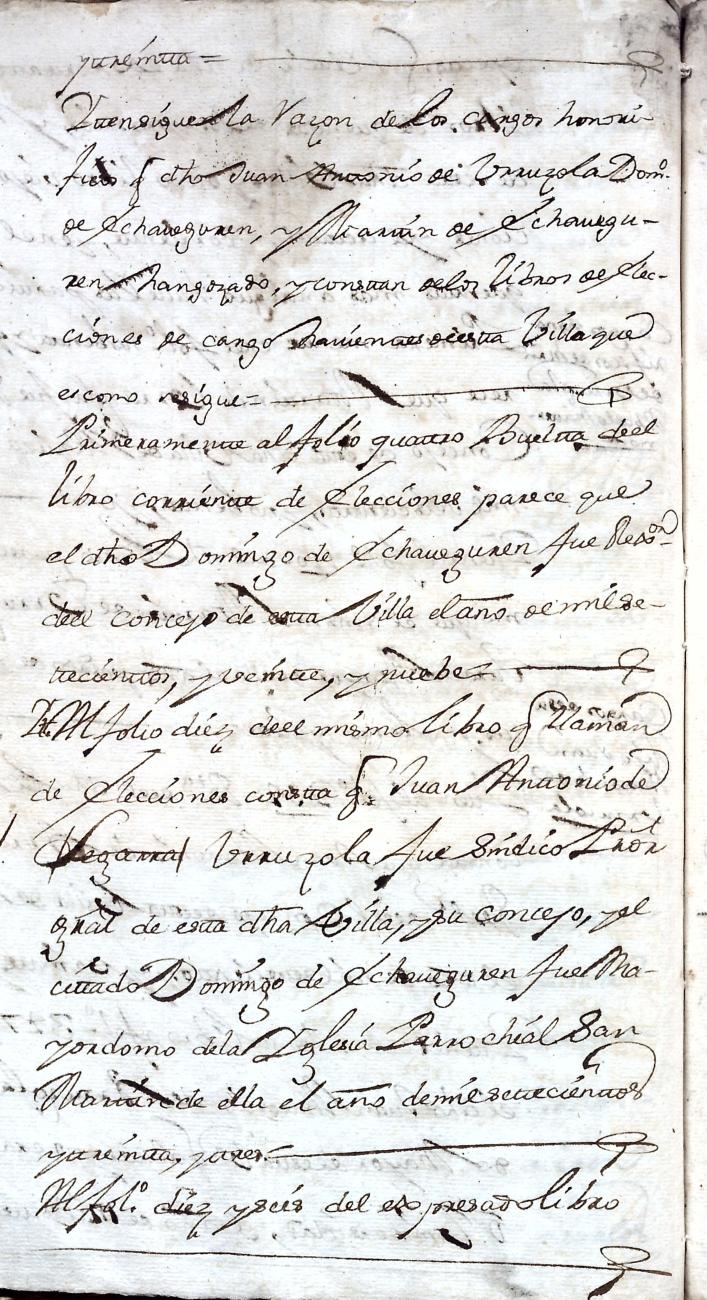 y treintta =
Ytten sigue la Razon de los cargos honori-
ficos q dho Juan Antonio de Urruzola Domo.
de Echaueguren, y Martin de Echauegu-
ren han gozado, y constan de los libros de Elec-
ciones de cargo havientes de esta Villa que
es como se sigue =
Primeramente al folio quattro Bueltta deel
libro corriente de Elecciones parece que
el dho Domingo de Echaueguren fue Rexor
deel concejo de estta Villa el año de mil se-
tecientos, y veintte, y nuebe =
Yt. Al folio diez deel mismo libro q llaman
de Elecciones constta q Juan Antonio de
Urruzola fue Sindico Pror
gral de esta dha Villa, y su concejo, y el
cittado Domingo de Echaueguren fue Ma-
yordomo de la Yglesia Parrochial San
Martin de ella el año de mil settecientos
y treintta, y tres.
Al folo. diez y seis del expresado libro